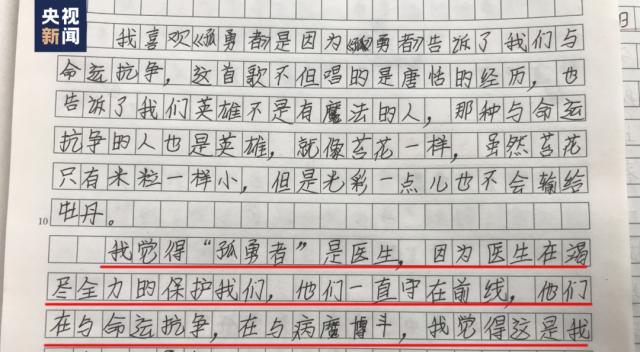 央视
新闻
日
我喜欢《孤勇者》是因为《孤勇者》告诉了我们与
命运抗争，这首歌不但唱的是唐恬的经历，也
告诉了我们英雄不是有魔法的人，那种与命运
抗争的人也是英雄，就像苔花一样，虽然苔花
只有米粒一样小，但是光彩一点儿也不会输给
牡丹。
10
我觉得“孤勇者”是医生，因为医生在竭
尽全力的保护我们，他们一直守在前线，他们
在与命运抗争，在与病魔博斗，我觉得这是我